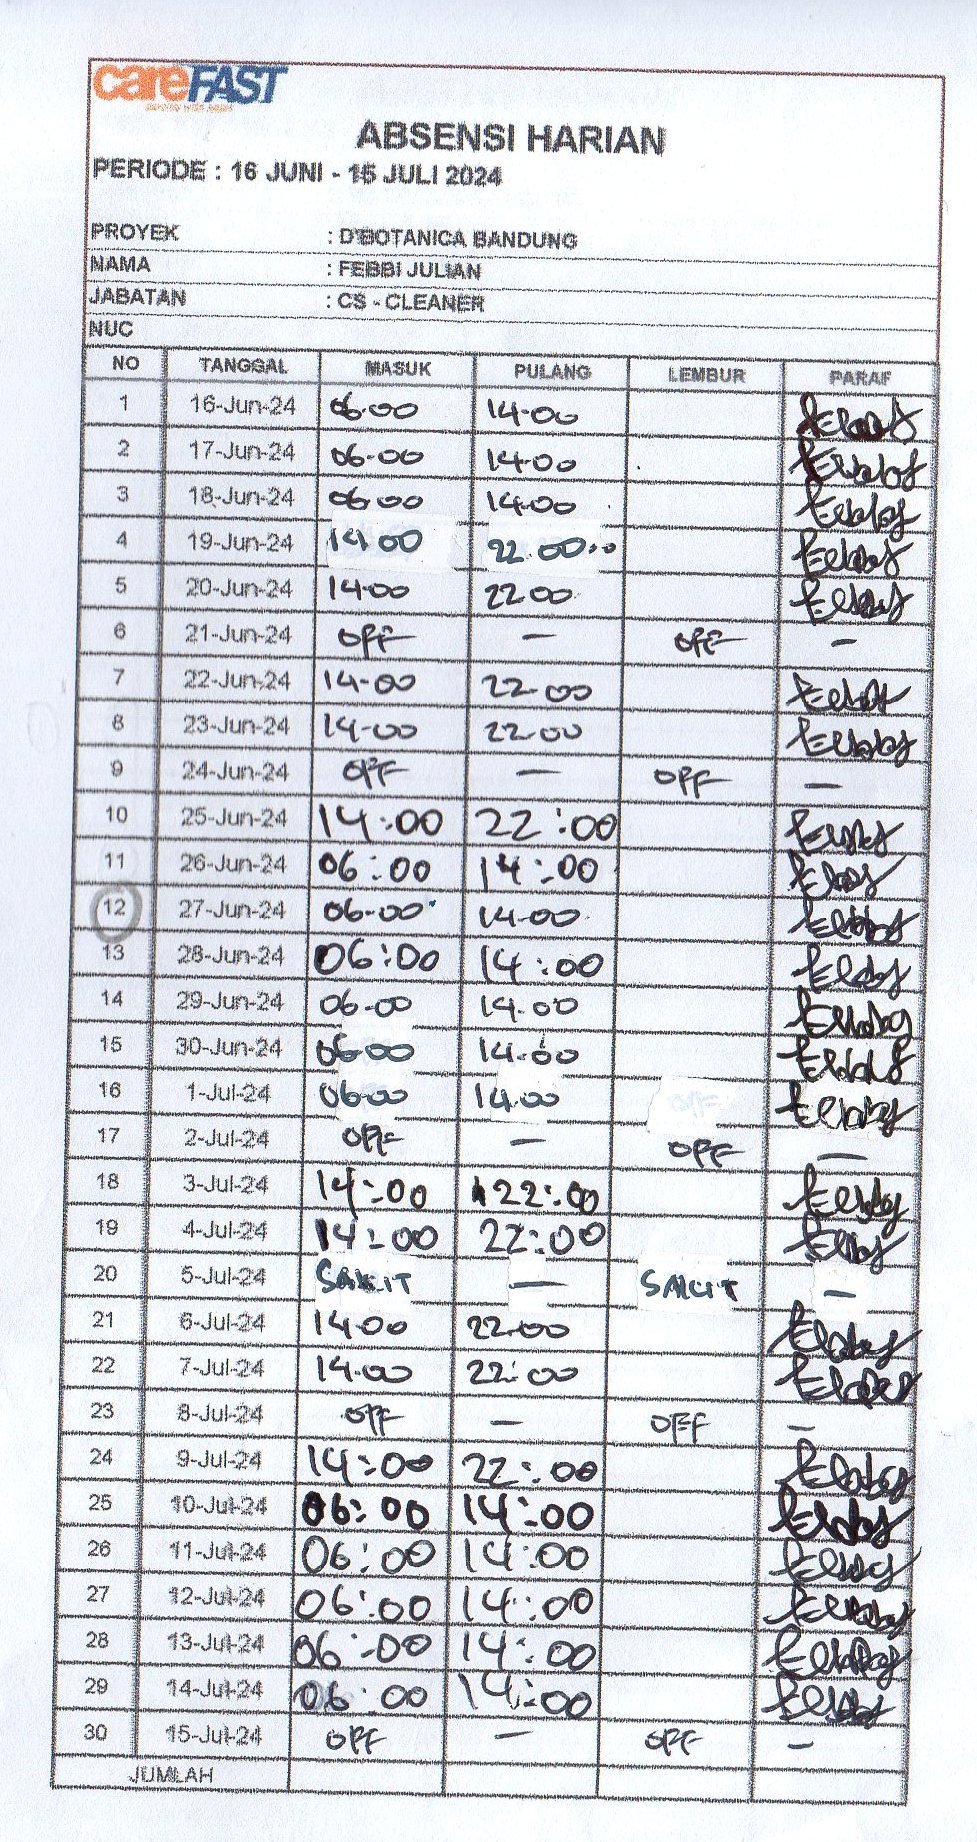 careFAST
ABSENSI HARIAN
PERIODE : 16 JUNI - 15 JULI 2024
PROYEK : D'BOTANICA BANDUNG
NAMA : FEBBI JULIAN
JABATAN : CS - CLEANER
NUC
NO TANGGAL MASUK PULANG LEMBUR PARAF
1 16-Jun-24 06.00 14.00
2 17-Jun-24 06.00 14.00
3 18-Jun-24 06.00 14.00
4 19-Jun-24 14.00 22.00
5 20-Jun-24 14.00 22.00
6 21-Jun-24 OFF - OFF -
7 22-Jun-24 14.00 22.00
8 23-Jun-24 14.00 22.00
9 24-Jun-24 OFF - OFF -
10 25-Jun-24 14:00 22:00
11 26-Jun-24 06:00 14:00
12 27-Jun-24 06.00 14.00
13 28-Jun-24 06:00 14:00
14 29-Jun-24 06.00 14.00
15 30-Jun-24 06.00 14.00
16 1-Jul-24 06.00 14.00 OFF
17 2-Jul-24 OFF - OFF -
18 3-Jul-24 14:00 22:00
19 4-Jul-24 14:00 22:00
20 5-Jul-24 SAKIT - SAKIT -
21 6-Jul-24 14.00 22.00
22 7-Jul-24 14.00 22:00
23 8-Jul-24 OFF - OFF -
24 9-Jul-24 14:00 22:00
25 10-Jul-24 06:00 14:00
26 11-Jul-24 06:00 14:00
27 12-Jul-24 06:00 14:00
28 13-Jul-24 06:00 14:00
29 14-Jul-24 06:00 14:00
30 15-Jul-24 OFF - OFF -
JUMLAH